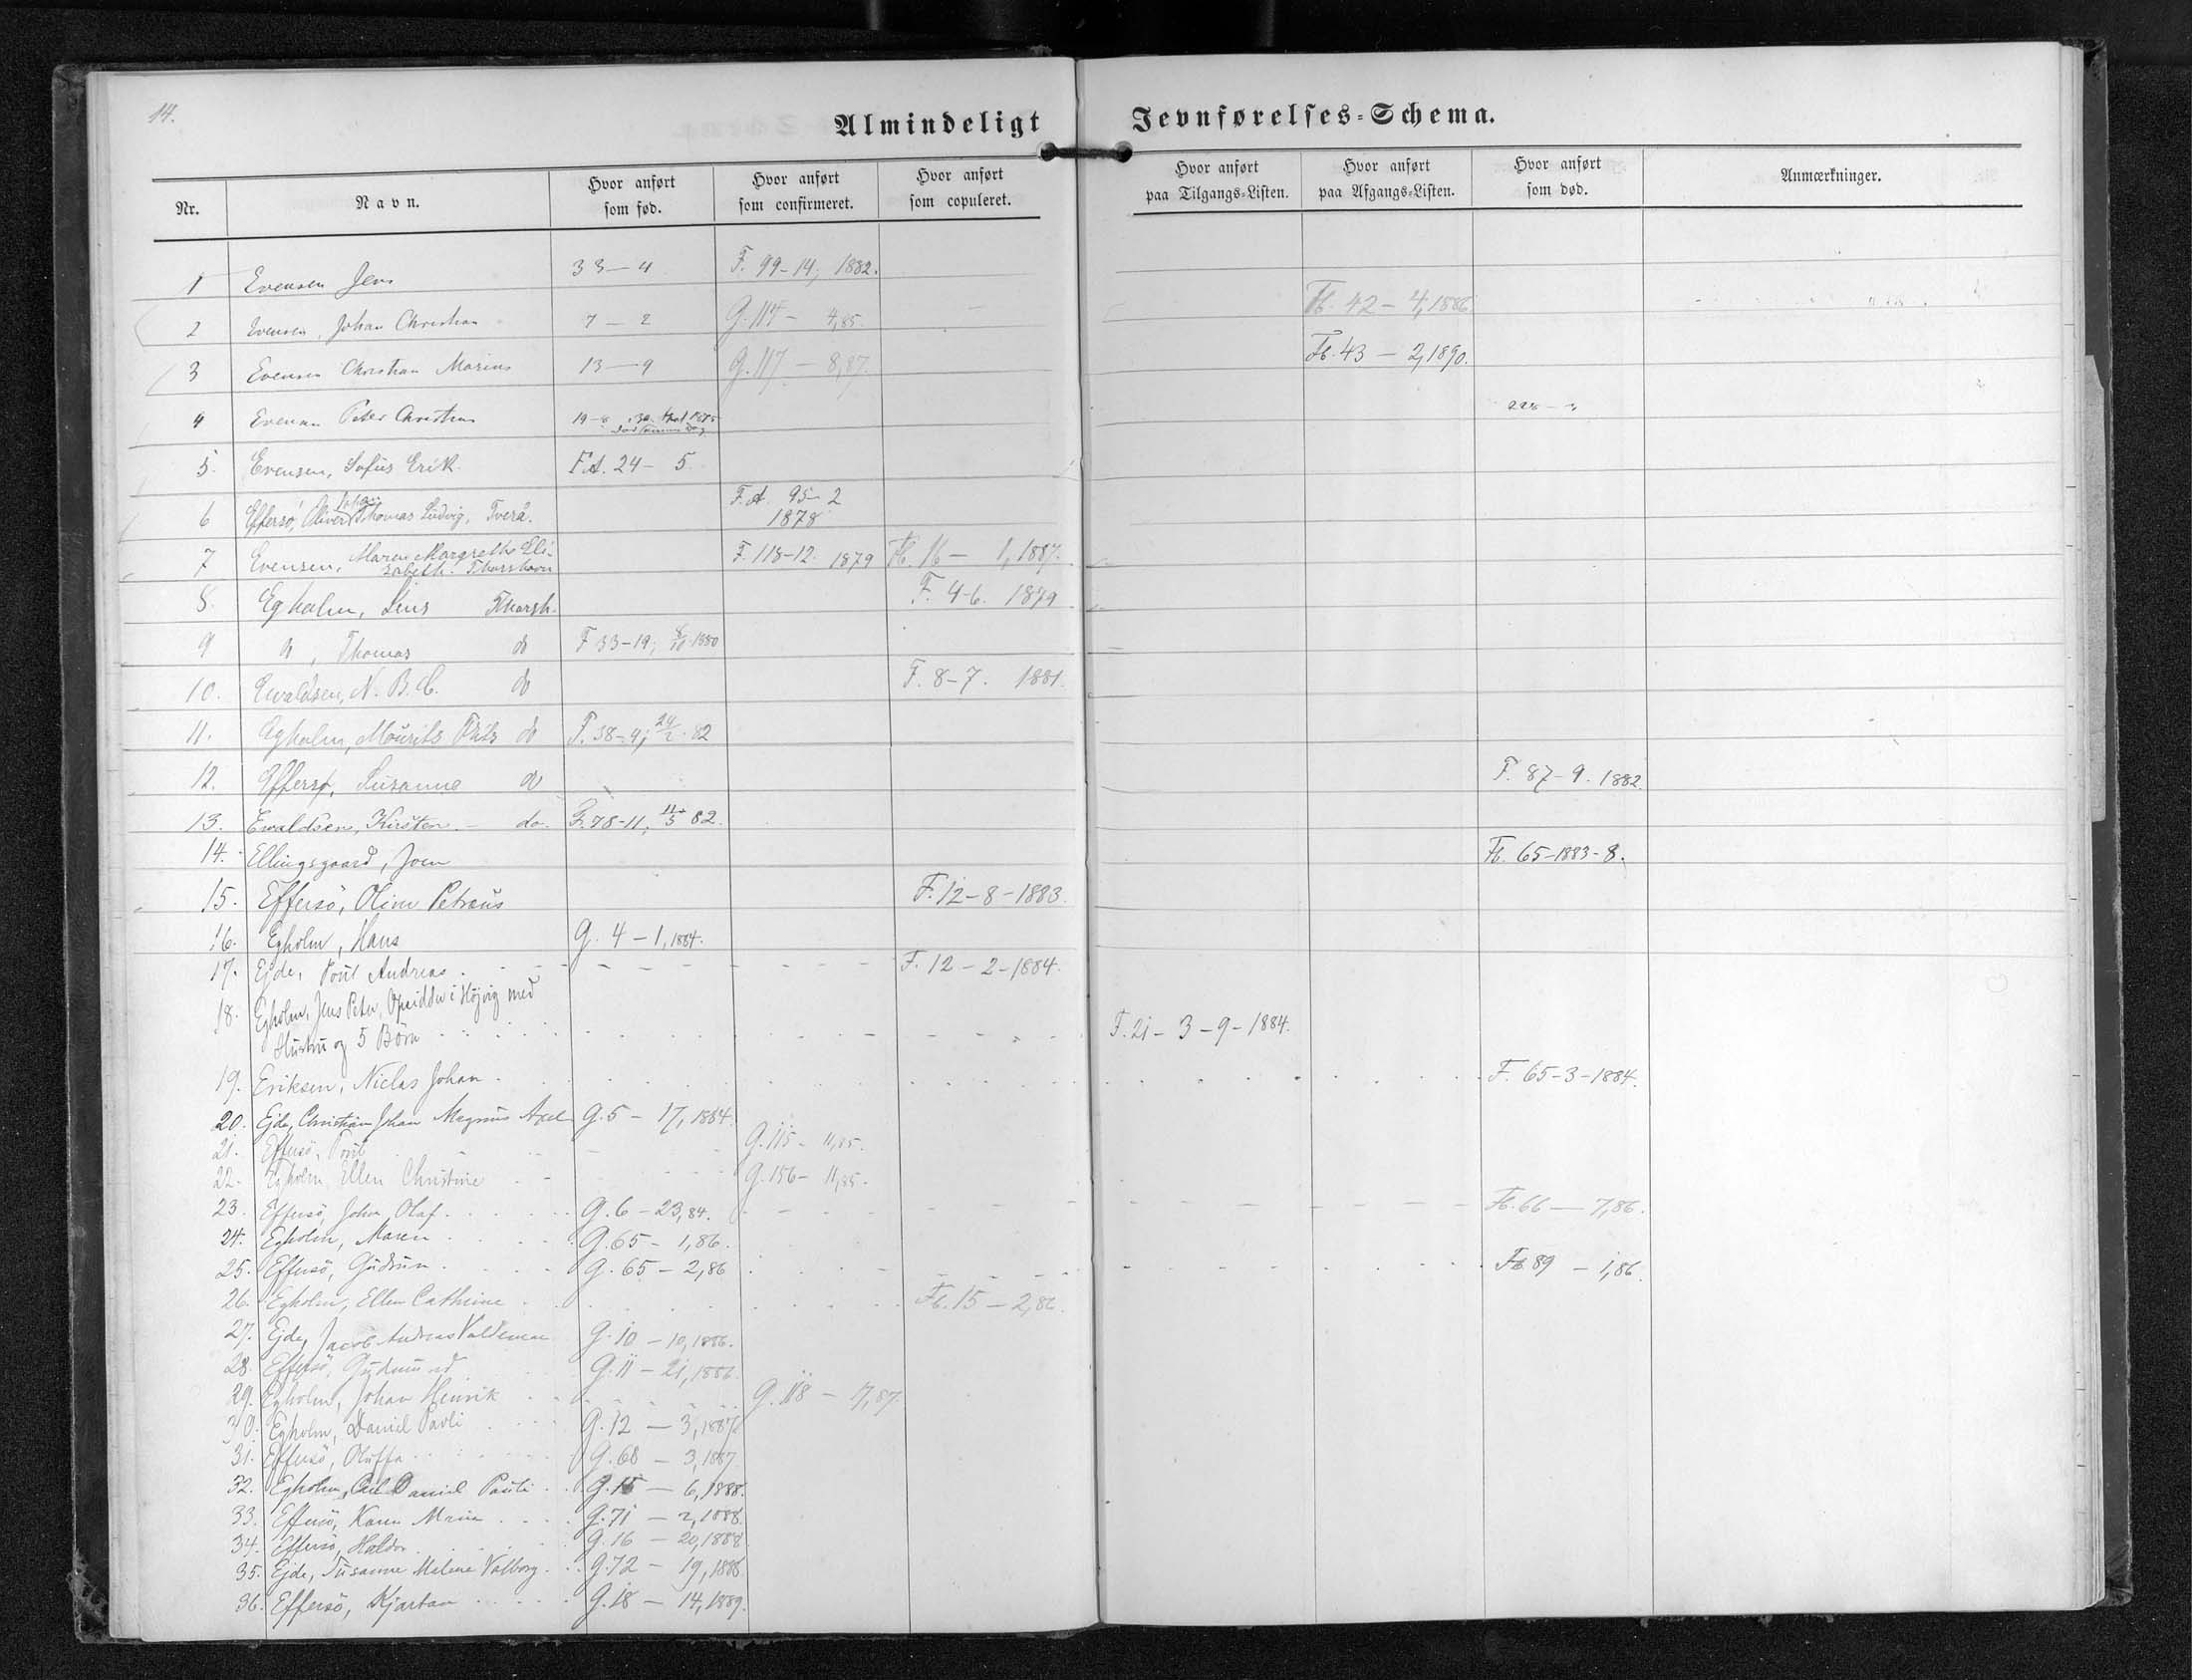 14.
Almindeligt Jevnførelses-Schema.
Nr. Navn. Hvor anført som fød. Hvor anført som confirmeret. Hvor anført som copuleret. Hvor anført paa Tilgangs-Listen. Hvor anført paa Afgangs-Listen. Hvor anført som død. Anmærkninger.
1 Evensen Jens 33-4 F. 99-14, 1882.
2 Evensen, Johan Christian 7-2 G. 114- 4,85. Fb. 42-4, 1886
3 Evensen Christian Marius 13-9 G. 117- 8,87. Fb. 43-2, 1890.
4 Evensen Peter Christian 19-
5. Evensen, Sofus Erik. F.A. 24- 5.
6 Effersö, Oliver Thomas Ludvig, Tverå. F.A 95-2 1878
7 Evensen, Maren Margrethe Elisabeth. Thorshavn F. 118-12. 1879 Fb. 16- 1, 1887.
8. Egholm, Thorsh. F. 4-6. 1879
9 do, Thomas do F 33-19; 1880
10. Ewaldsen, N. B. C. do F. 8-7. 1881.
11. Egholm, Mourits do F. 38-4; 24/2 82
12. Effersø, Susanne do F. 87-9. 1882.
13. Ewaldsen, Kirsten. - do. F. 78-11; 11/5 82.
14. Ellingsgaard, Joen Fb. 65-1883-8.
15. Effersö, Oliver Petræus F. 12-8-1883.
16. Egholm, Hans G. 4-1, 1884.
17. Ejde, Poul Andreas F. 12-2-1884.
18. Egholm, Jens Peter, Opsidder i Höjvig med
Hustru og 5 Börn F. 21-3-9-1884.
19. Eriksen, Niclas Johan. F. 65-3-1884.
20. Ejde, Christian Johan Magnus Axel G. 5- 17, 1884.
21. Effersö, Poul G. 115- 11,85.
22. Egholm, Ellen Christine G. 156- 11,85.
23. Effersö, John Olaf. G. 6-23,84. Fb. 66-7,86.
24. Egholm, Maren G. 65- 1,86.
25. Effersö, Gudrun. G. 65-2,86 Fb 89 - 1,86.
26. Egholm, Ellen Cathrine Fb. 15-2,86.
27. Ejde, Jacob Andreas Valdemar G. 10-10, 1886.
28. Effersö, Gudmund G. 11-21, 1886.
29. Egholm, Johan Henrik G. 118- 7,87.
30. Egholm, Daniel Pauli G. 12-3, 1887
31. Effersö, Oluffa G. 68-3, 1887
32. Egholm, Carl Daniel Pauli G. 15-6, 1888.
33. Effersö, Karen Marie G. 71-2, 1888.
34. Effersö, Haldor. G. 16-20, 1888
35. Ejde, Susanne Malene Valborg. G. 72- 19, 1888
36. Effersö, Kjartan G. 18-14, 1889.